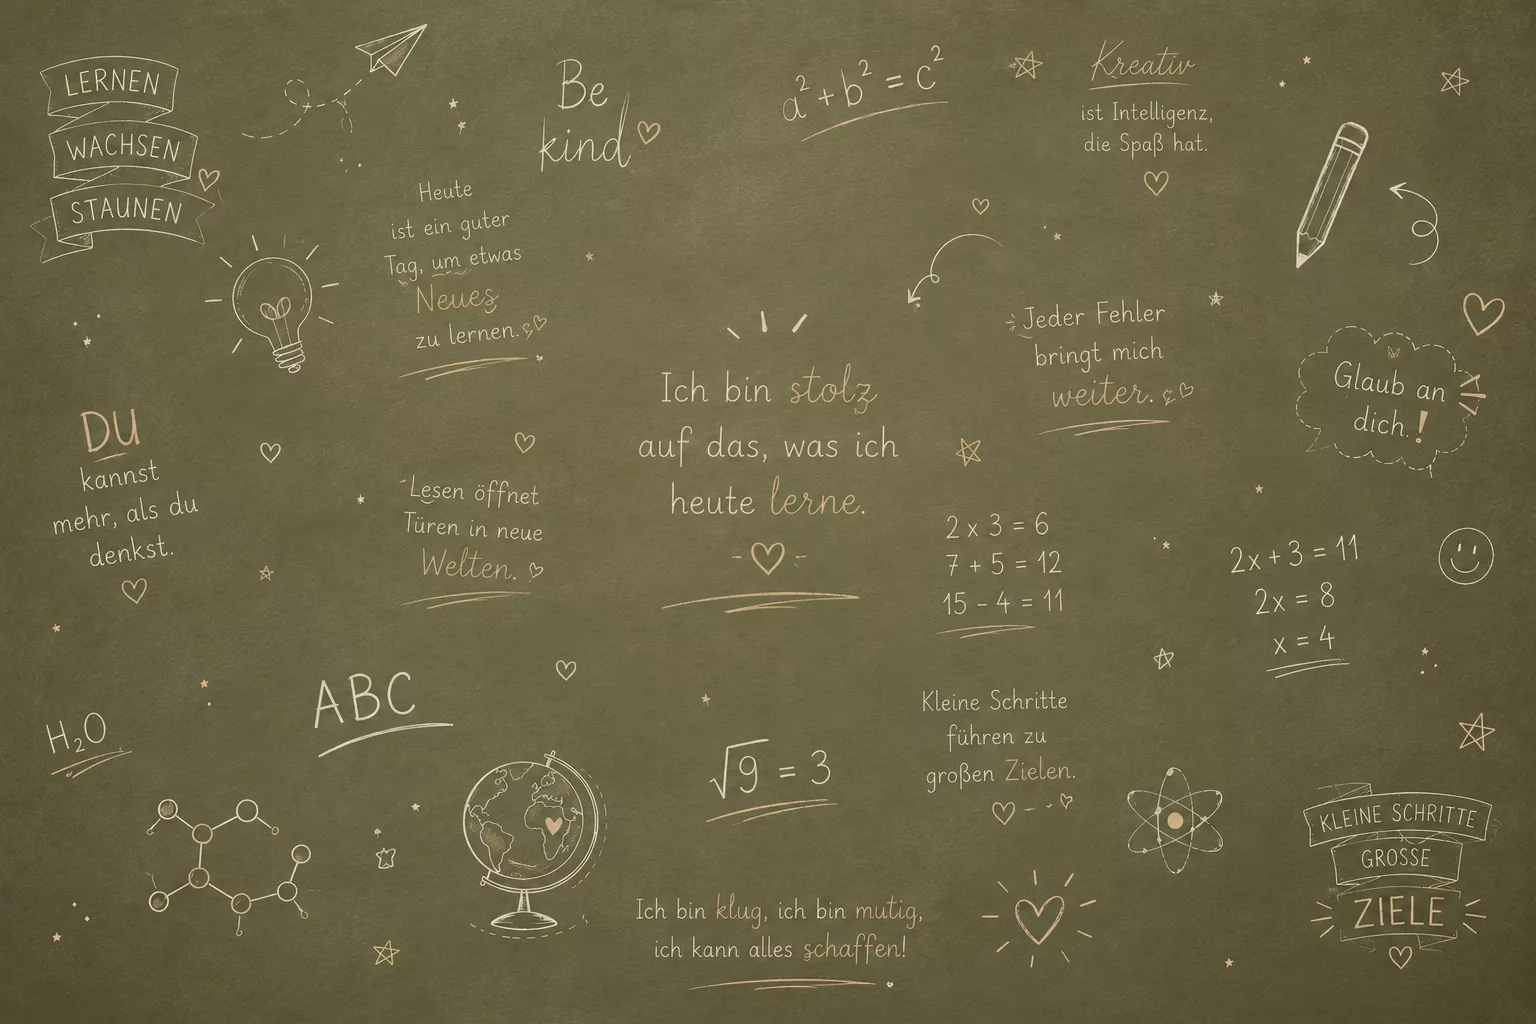 LERNEN
WACHSEN
STAUNEN
Be
kind
a² + b² = c²
Kreativ
ist Intelligenz,
die Spaß hat.
Heute
ist ein guter
Tag, um etwas
Neues
zu lernen.
Jeder Fehler
bringt mich
weiter.
Glaub an
dich.!
Ich bin stolz
auf das, was ich
heute lerne.
DU
kannst
mehr, als du
denkst.
Lesen öffnet
Türen in neue
Welten.
2 x 3 = 6
7 + 5 = 12
15 - 4 = 11
2x + 3 = 11
2x = 8
x = 4
H₂O
ABC
√9 = 3
Kleine Schritte
führen zu
großen Zielen.
KLEINE SCHRITTE
GROSSE
ZIELE
Ich bin klug, ich bin mutig,
ich kann alles schaffen!